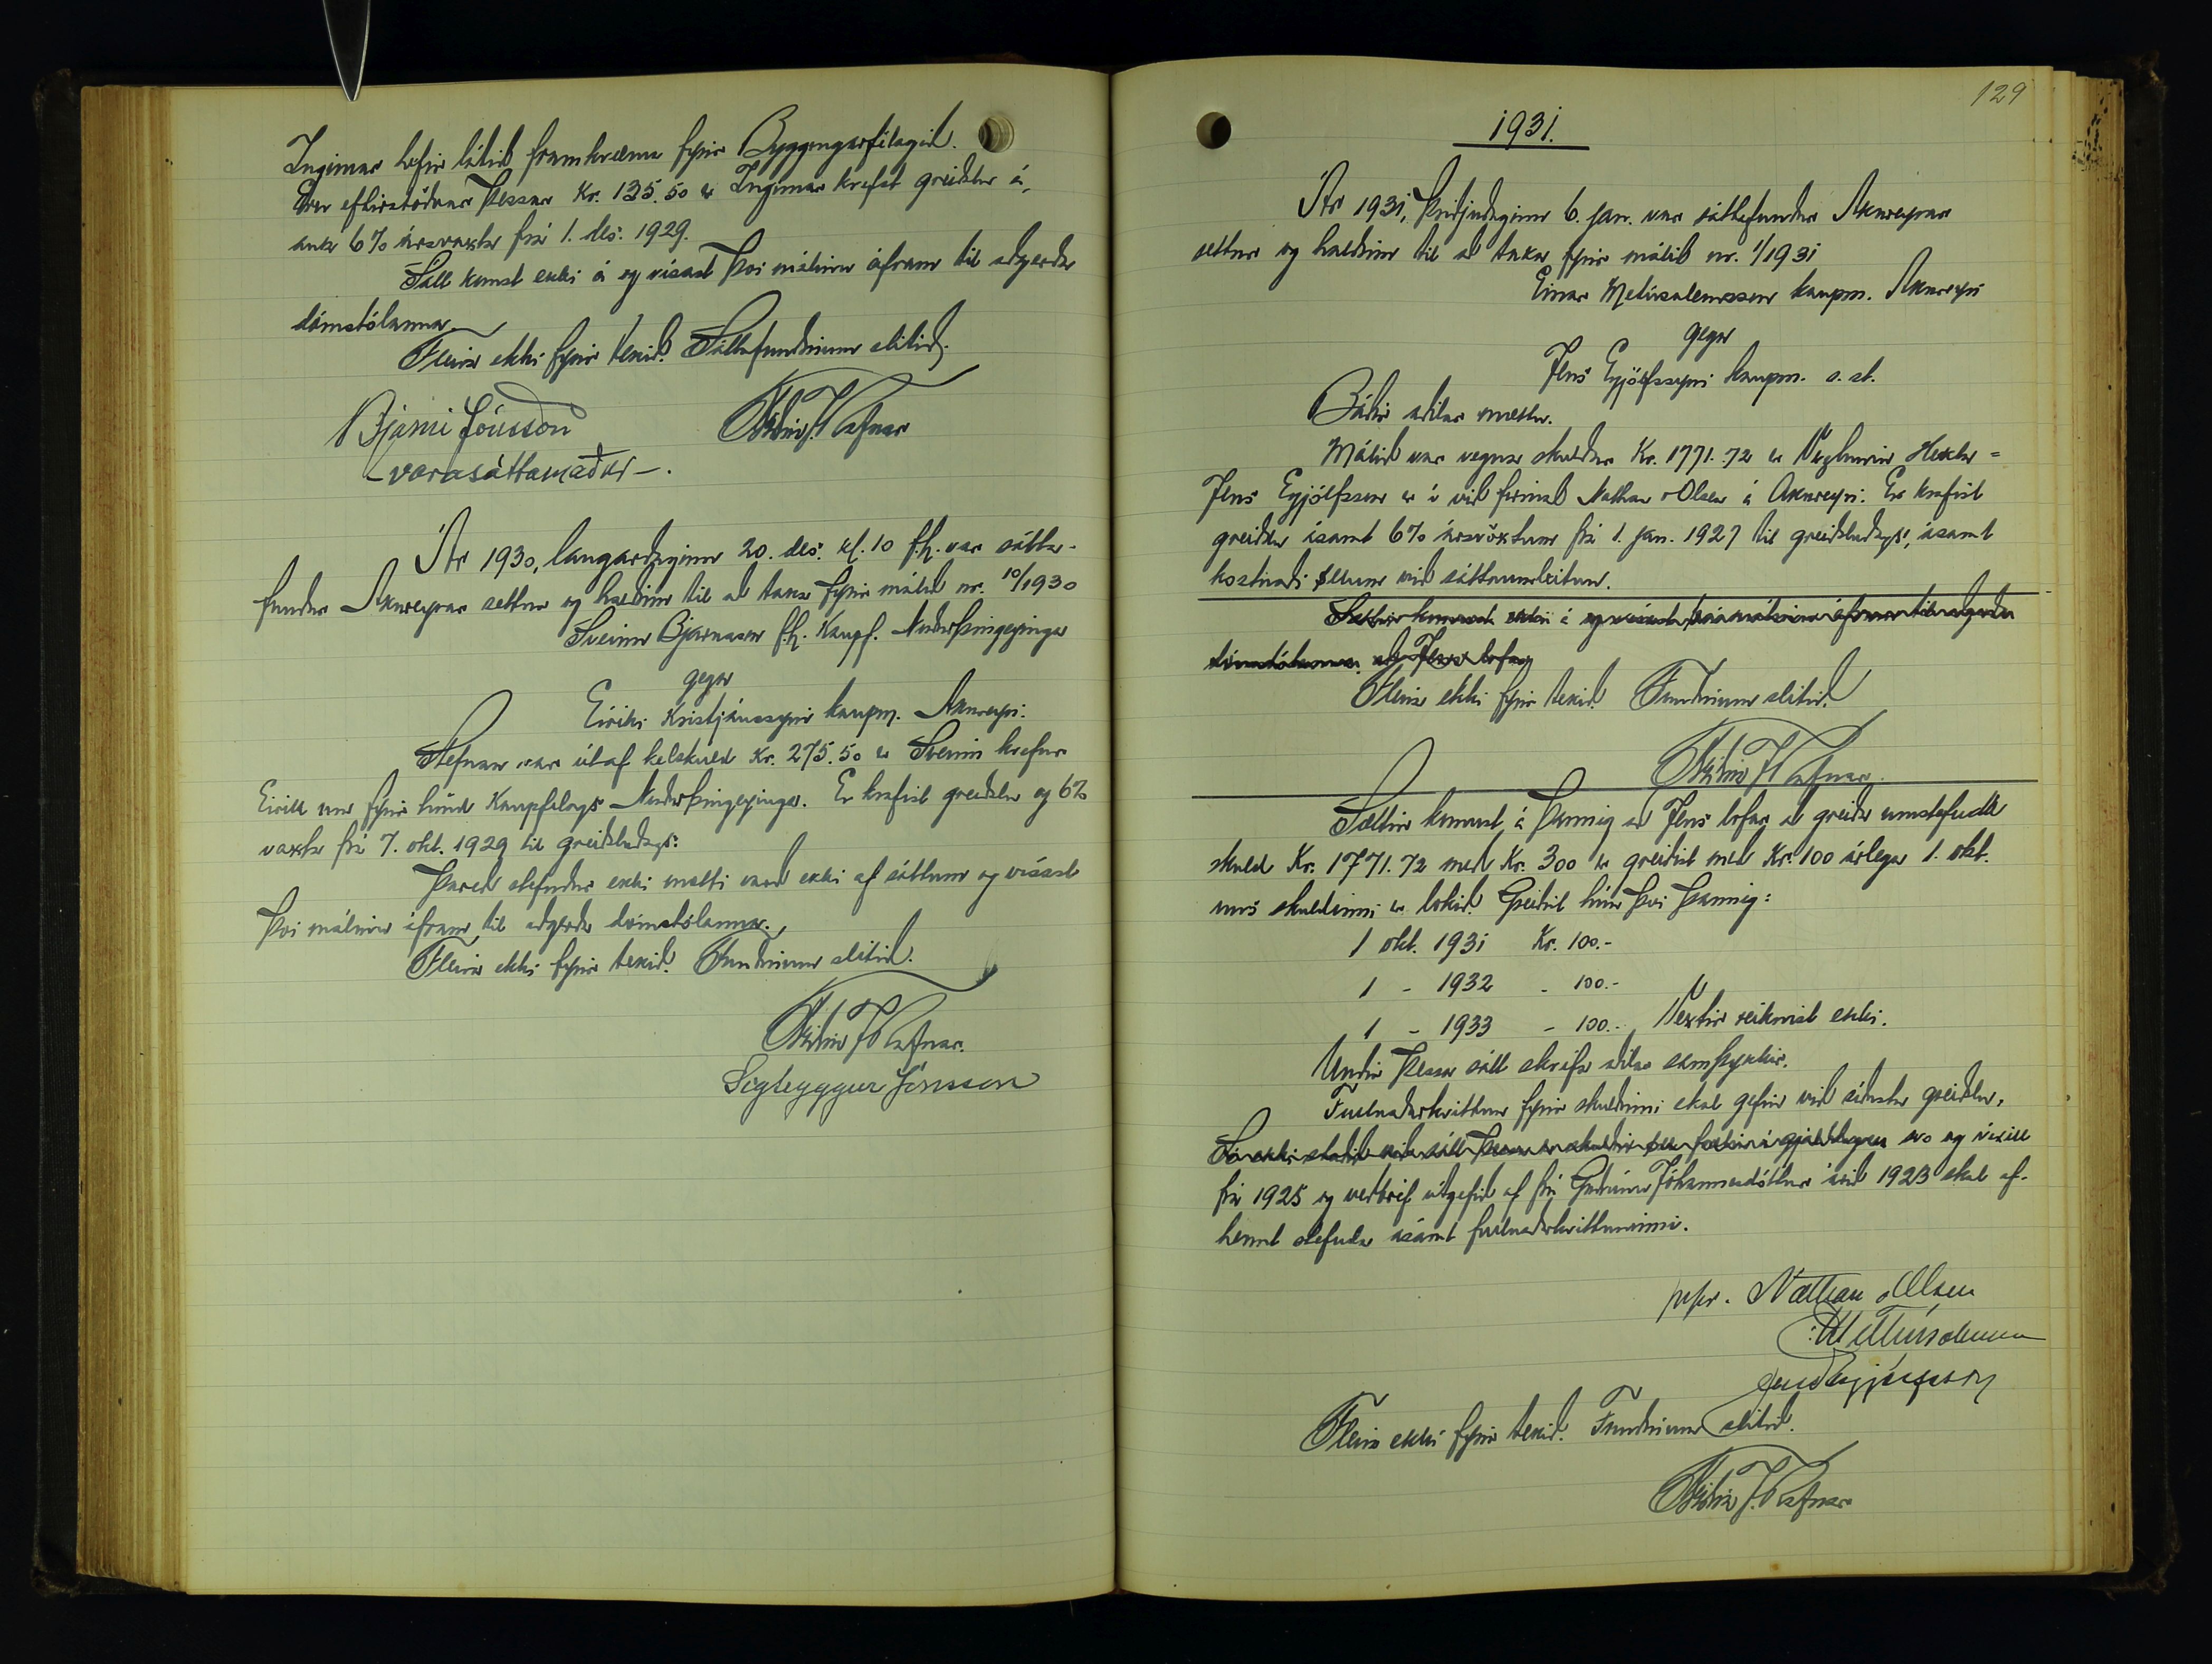 Ingimar hefir látið framkvæma fyrir Byggingarfélagið.
Eru eftirstöðvar þessar Kr. 135.50 er Ingimar krefst greiðslu á,
auk 6% ársvaxta frá 1. des. 1929.
Sátt komst ekki á og vísast því málinu áfram til aðgerða
dómstólanna.
Fleira ekki fyrir tekið. Sáttafundinum slitið.
Bjarni Jónsson
- varasáttamaður -.
Ár 1930, laugardaginn 20. des. kl. 10 f.h. var sátta-
fundur Akureyrar settur og haldinn til að taka fyrir málið nr. 10/1930
Sveinn Bjarnason f.h. Kaupf. Norðurþingeyinga
gegn
Eiríki Kristjánssyni kaupm. Akureyri.
Stefnan var útaf kelskuld Kr. 275.50 er Sveinn krefur
Eirík um fyrir hönd Kaupfélags Norðurþingeyinga. Er krafist greiðslu og 6%
vaxta frá 7. okt. 1929 til greiðsludags.
Þareð stefndur ekki mætti varð ekki af sáttum og vísast
því málinu áfram til aðgerða dómstólanna.
Fleira ekki fyrir tekið. Fundinum slitið.
Sigtryggur Jónsson
129
1931.
Ár 1931, þriðjudaginn 6. jan. var sáttafundur Akureyrar
settur og haldinn til að taka fyrir málið nr. 1/1931
Einar Metúsalemsson kaupm. Akureyri
gegn
Jens Eyjólfssyni kaupm. s.st.
Báðir aðilar mættu.
Málið var vegna skuldar Kr. 1771.72 er
Jens Eyjólfsson er í við firmað Nathan & Olsen á Akureyri. Er krafist
greiðslu ásamt 6% ársvöxtum frá 1. jan. 1927 til greiðsludags, ásamt
kostnaði öllum við sáttaumleitun.
Sættir komust ekki á og vísast því málinu áfram til aðgerða
dómstólanna. að Jens lofar
Fleira ekki fyrir tekið. Fundinum slitið.
Sættir komust á þannig að Jens lofar að greiða umstefnda
skuld Kr. 1771.72 með Kr. 300 er greiðist með Kr. 100 árlega 1. okt.
uns skuldinni er lokið. Greiðist hún því þannig:
1 okt. 1931 Kr. 100.-
1 - 1932 - 100.-
1 - 1933 - 100.- Vextir reiknist ekki.
Undir þessa sátt skrifa aðilar samþykkir.
Fullnaðarkvittun fyrir skuldinni skal gefin við síðustu greiðslu,
Sé ekki staðið við sátt þessa er skuldin öll fallin í gjalddaga svo og víxill
frá 1925 og veðbréf útgefið af frú Guðrúnu Jóhannesdóttur árið 1923 skal af-
hent stefnda ásamt fullnaðarkvittuninni.
pr.pr. Nathan & Olsen
E Metúsalemsson
Jens Eyjólfsson
Fleira ekki fyrir tekið. Fundinum slitið.